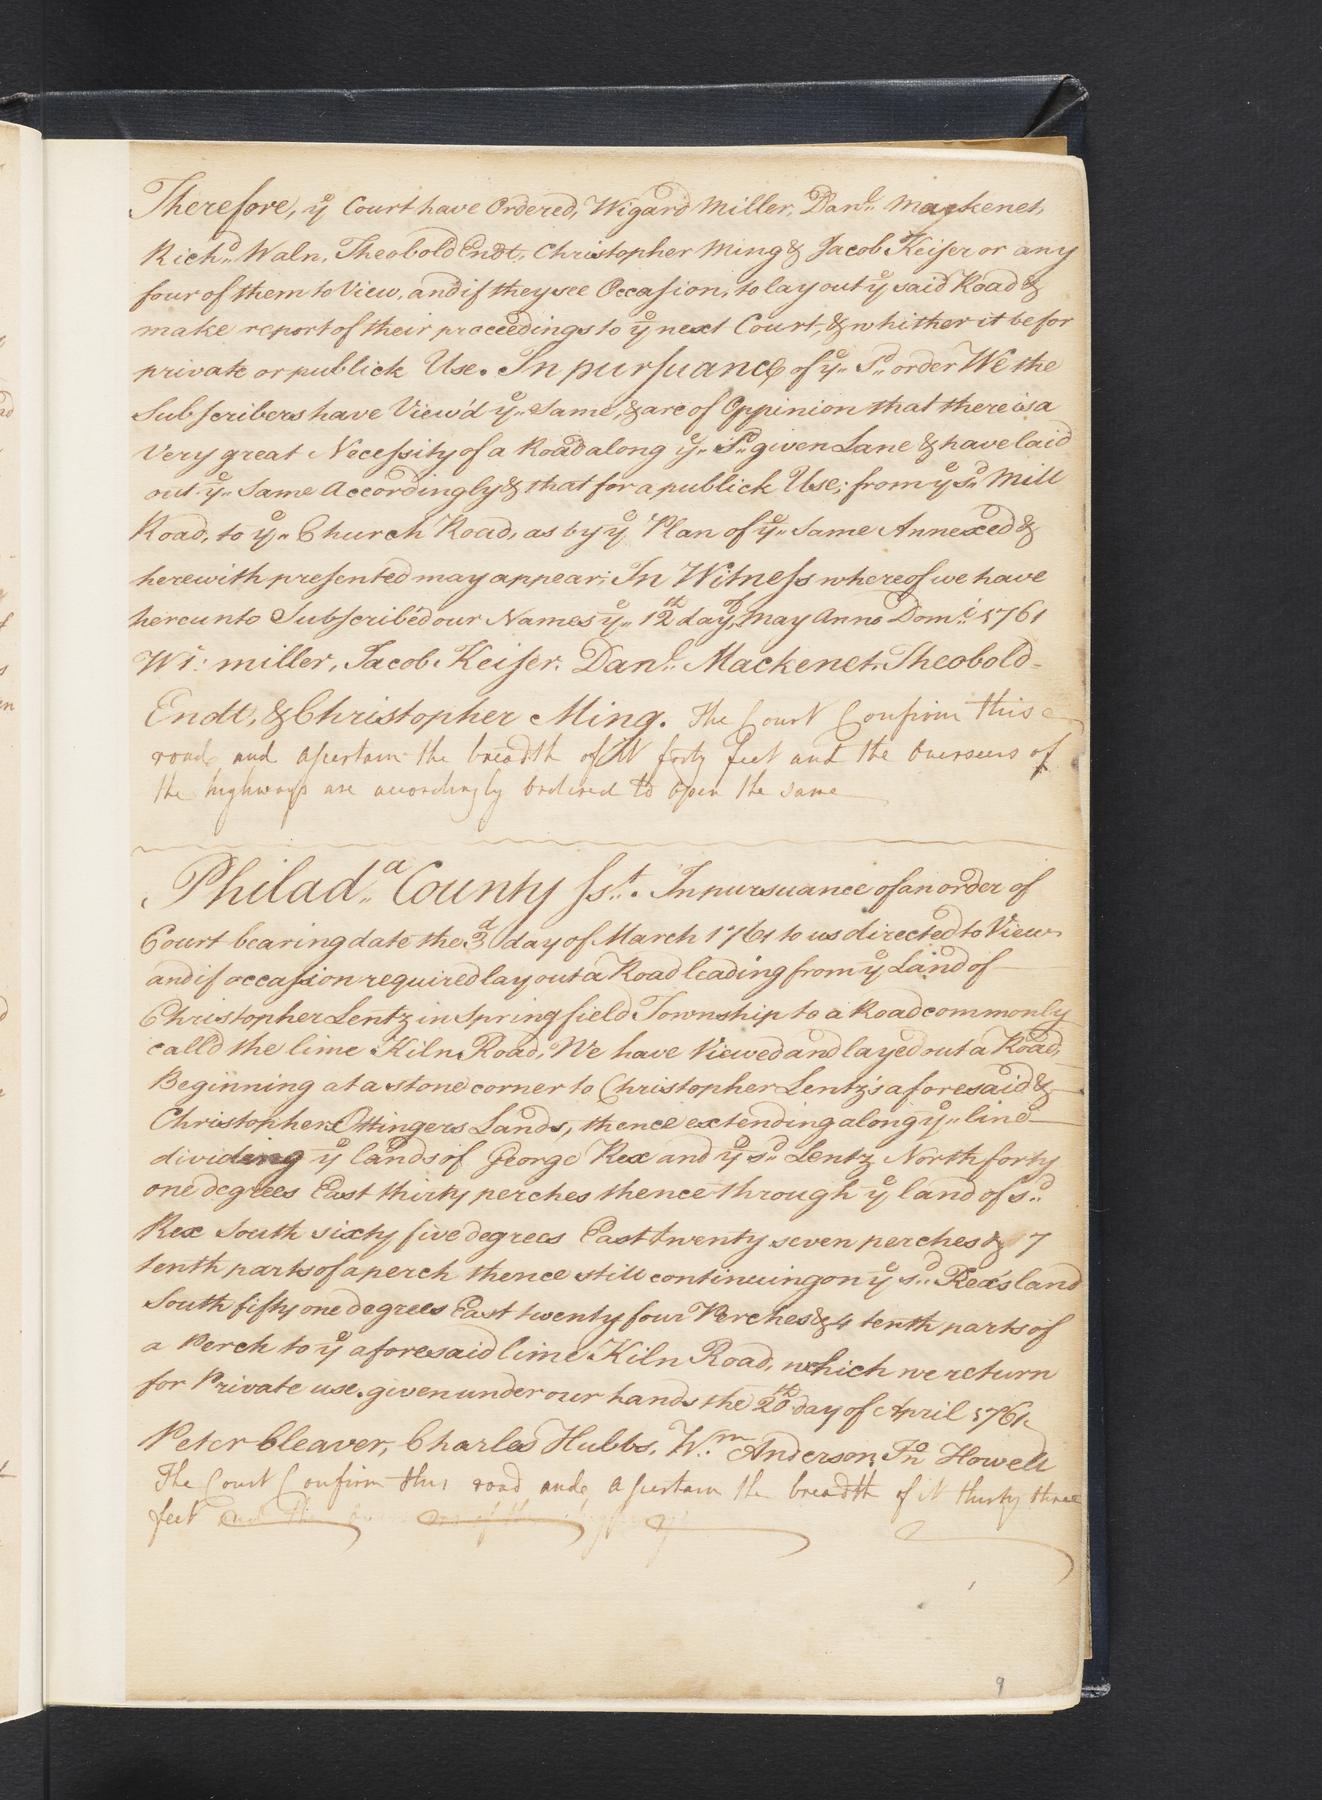 Therefore, ye Court have Ordered, Wigard Miller, Danl. Mackenet,
Richd. Waln, Theobold Endt, Christopher Ming & Jacob Keiser or any
four of them to View, and if they see Occasion, to lay out ye said Road &
make report of their proceedings to ye next Court, & whither it be for
private or publick Use. In pursuance of ye Sd. order We the
Subscribers have View'd ye Same, & are of Oppinion that there is a
Very great Necessity of a Road along ye Sd. given Lane & have laid
out ye Same Accordingly & that for a publick Use; from ye sd. Mill
Road, to ye Church Road, as by ye Plan of ye Same Annexed &
herewith presented may appear; In Witness whereof we have
hereunto Subscribed our Names ye 12th day of May Anno Domi. 1761
Wi: miller, Jacob Keiser. Danl. Mackenet. Theobold
Endt, & Christopher Ming. The Court Confirm this
road and assertain the breadth of it forty feet and the Overseers of
the highways are accordingly ordered to open the same
Philada. County Sst. In pursuance of an order of
Court bearing date the 3d day of March 1761 to us directed to View
and if occasion required lay out a Road leading from ye Land of
Christopher Lentz in Springfield Township to a Road commonly
calld the lime Kiln Road, We have Viewed and layed out a Road,
Beginning at a stone corner to Christopher Lentz's aforesaid &
Christopher Ottingers Lands, thence extending along ye line
dividing ye lands of George Rex and ye sd. Lentz North forty
one degrees East thirty perches thence through ye land of sd.
Rex South sixty five degrees East twenty seven perches & 7
tenth parts of a perch thence still continuing on ye sd. Rex's land
South fifty one degrees East twenty four Perches & 4 tenth parts of
a Perch to ye aforesaid lime Kiln Road, which we return
for Private use. given under our hands the 20th day of April 1761
Peter Cleaver, Charles Hubbs, Wm. Anderson, Jno Howell
The Court Confirm this road and assertain the breadth of it thirty three
feet
9